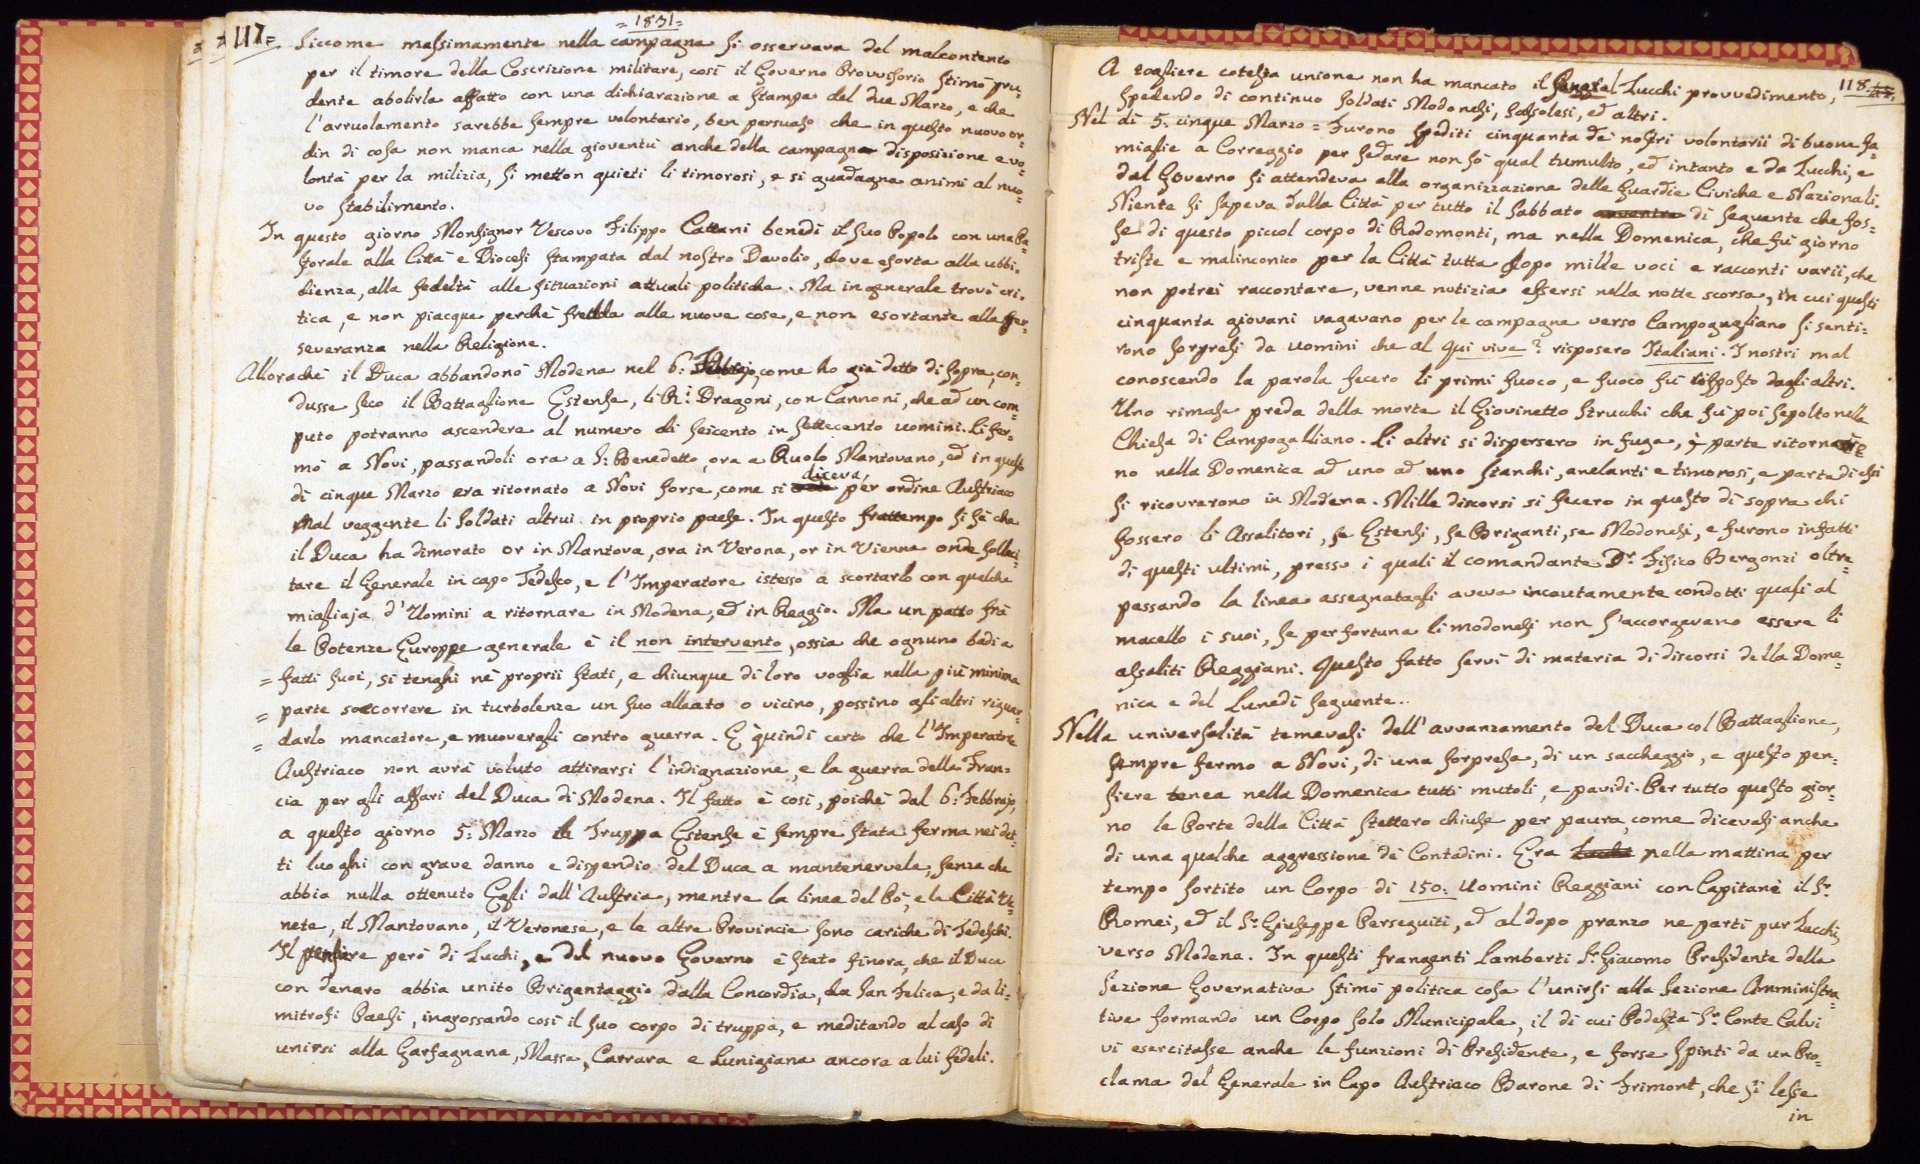 =1831=
117=
Siccome massimamente nella campagna si osservava del malcontento
per il timore della Coscrizione militare, così il Governo Provvisorio stimò pru-
dente abolirla affatto con una dichiarazione a stampa del due Marzo, e che
l'arruolamento sarebbe sempre volontario, ben persuaso che in questo nuovo or-
din di cosa non manca nella gioventù anche della campagna disposizione e vo-
lontà per la milizia, si metton quieti li timorosi, e si guadagna animi al nuo-
vo stabilimento.
In questo giorno Monsignor Vescovo Filippo Cattani benedì il suo Popolo con una Pa-
storale alla Città e Diocesi stampata dal nostro Davolio, dove esorta alla ubbi-
dienza, alla fedeltà alle situazioni attuali politiche. Ma in generale trovò cri-
tica, e non piacque perchè fredda alle nuove cose, e non esortante alla per-
severanza nella Religione.
Allorachè il Duca abbandonò Modena nel 6: Febbrajo, come ho già detto di sopra, con-
dusse seco il Battaglione Estense, li R.i Dragoni, con Cannoni, che ad un com-
puto potranno ascendere al numero di seicento in settecento uomini. Si fer-
mò a Novi, passandoli ora a S: Benedetto, ora a Ruolo Mantovano, ed in questo
di cinque Marzo era ritornato a Novi forse, come si diceva, per ordine Austriaco
mal veggente li soldati altrui in proprio paese. In questo frattempo si fè che
il Duca ha dimorato or in Mantova, ora in Verona, or in Vienna onde solleci-
tare il Generale in capo Tedesco, e l'Imperatore istesso a scortarlo con qualche
migliaja d'Uomini a ritornare in Modena, ed in Reggio. Ma un patto frà
le Potenze Europpe generale è il non intervento, ossia che ognuno badi a
= fatti suoi, si tenghi nè proprii stati, e chiunque di loro voglia nella più minima
= parte soccorrere in turbolenze un suo alleato o vicino, possino gli altri riguar-
= darlo mancatore, e muovergli contro guerra. È quindi certo che l'Imperatore
Austriaco non avrà voluto attirarsi l'indignazione, e la guerra della Fran-
cia per gli affari del Duca di Modena. Il fatto è così, poichè dal 6: Febbrajo,
a questo giorno 5: Marzo la Truppa Estense è sempre stata ferma nei det-
ti luoghi con grave danno e dispendio del Duca a mantenervela, senza che
abbia nulla ottenuto Egli dall'Austria, mentre la linea del Pò, e la Città Ve-
neta, il Mantovano, il Veronese, e le altre Provincie sono cariche di Tedeschi.
Il pensiere però di Zucchi, e del nuovo Governo è stato finora, che il Duca
con denaro abbia unito Brigantaggio dalla Concordia, da San Felice, e da li-
mitrofi Paesi, ingrossando così il suo corpo di truppa, e meditando al caso di
unirsi alla Garfagnana, Massa, Carrara e Lunigiana ancora a lui fedeli.
118.
A togliere cotesta unione non ha mancato il General Zucchi provvedimento,
spedendo di continuo soldati Modonesi, Sassolesi, ed altri.
Nel dì 5. cinque Marzo = Furono spediti cinquanta dè nostri volontarii di buone fa-
miglie a Correggio per sedare non sò qual tumulto, ed intanto e da Zucchi, e
dal Governo si attendeva alla organizzazione delle Guardie Civiche e Nazionali.
Niente si sapeva dalla Città per tutto il Sabbato di seguente che fos-
se di questo piccol corpo di Rodomonti, ma nella Domenica, che fù giorno
triste e malinconico per la Città tutta dopo mille voci e racconti varii, che
non potrei raccontare, venne notizia essersi nella notte scorsa, in cui questi
cinquanta giovani vagavano per le campagna verso Campogagliano si senti-
rono sorpresi da uomini che al qui vive? risposero Italiani. I nostri mal
conoscendo la parola fecero li primi fuoco, e fuoco fù risposto dagli altri.
Uno rimase preda della morte il Giovinetto Strucchi che fù poi sepolto nella
Chiesa di Campogalliano. Li altri si dispersero in fuga, e parte ritornaro-
no nella Domenica ad uno ad uno stanchi, anelanti e timorosi, e parte di essi
si ricovrarono in Modena. Mille discorsi si fecero in questo dì sopra chi
fossero li Assalitori, se Estensi, se Briganti, se Modonesi, e furono infatti
di questi ultimi, presso i quali il comandante D.r Fisico Bergonzi oltre-
passando la linea assegnatagli aveva incautamente condotti quasi al
macello i suoi, se per fortuna li modonesi non s'accorgevano essere li
assaliti Reggiani. Questo fatto servì di materia di discorsi della Dome-
nica e del Lunedì seguente..
Nella universalità temevasi dell'avvanzamento del Duca col Battaglione,
sempre fermo a Novi, di una sorpresa, di un saccheggio, e questo pen-
siere tenea nella Domenica tutti mutoli, e pavidi. Per tutto questo gior-
no le Porte della Città stettero chiuse per paura, come dicevasi anche
di una qualche aggressione dè Contadini. Era nella mattina per
tempo sortito un Corpo di 150: Uomini Reggiani con Capitanè il S.r
Romei, ed il S.r Giuseppe Perseguiti, ed al dopo pranzo ne partì pur Zucchi
verso Modena. In questi frangenti Lamberti S.r Giacomo Presidente della
Sezione Governativa stimò politica cosa l'unirsi alla Sezione Amministra-
tiva formando un Corpo solo Municipale, il di cui Podestà S.r Conte Calvi
vi esercitasse anche le funzioni di Presidente, e forse spinti da un Pro-
clama del Generale in Capo Austriaco Barone di Frimont, che si lesse
in